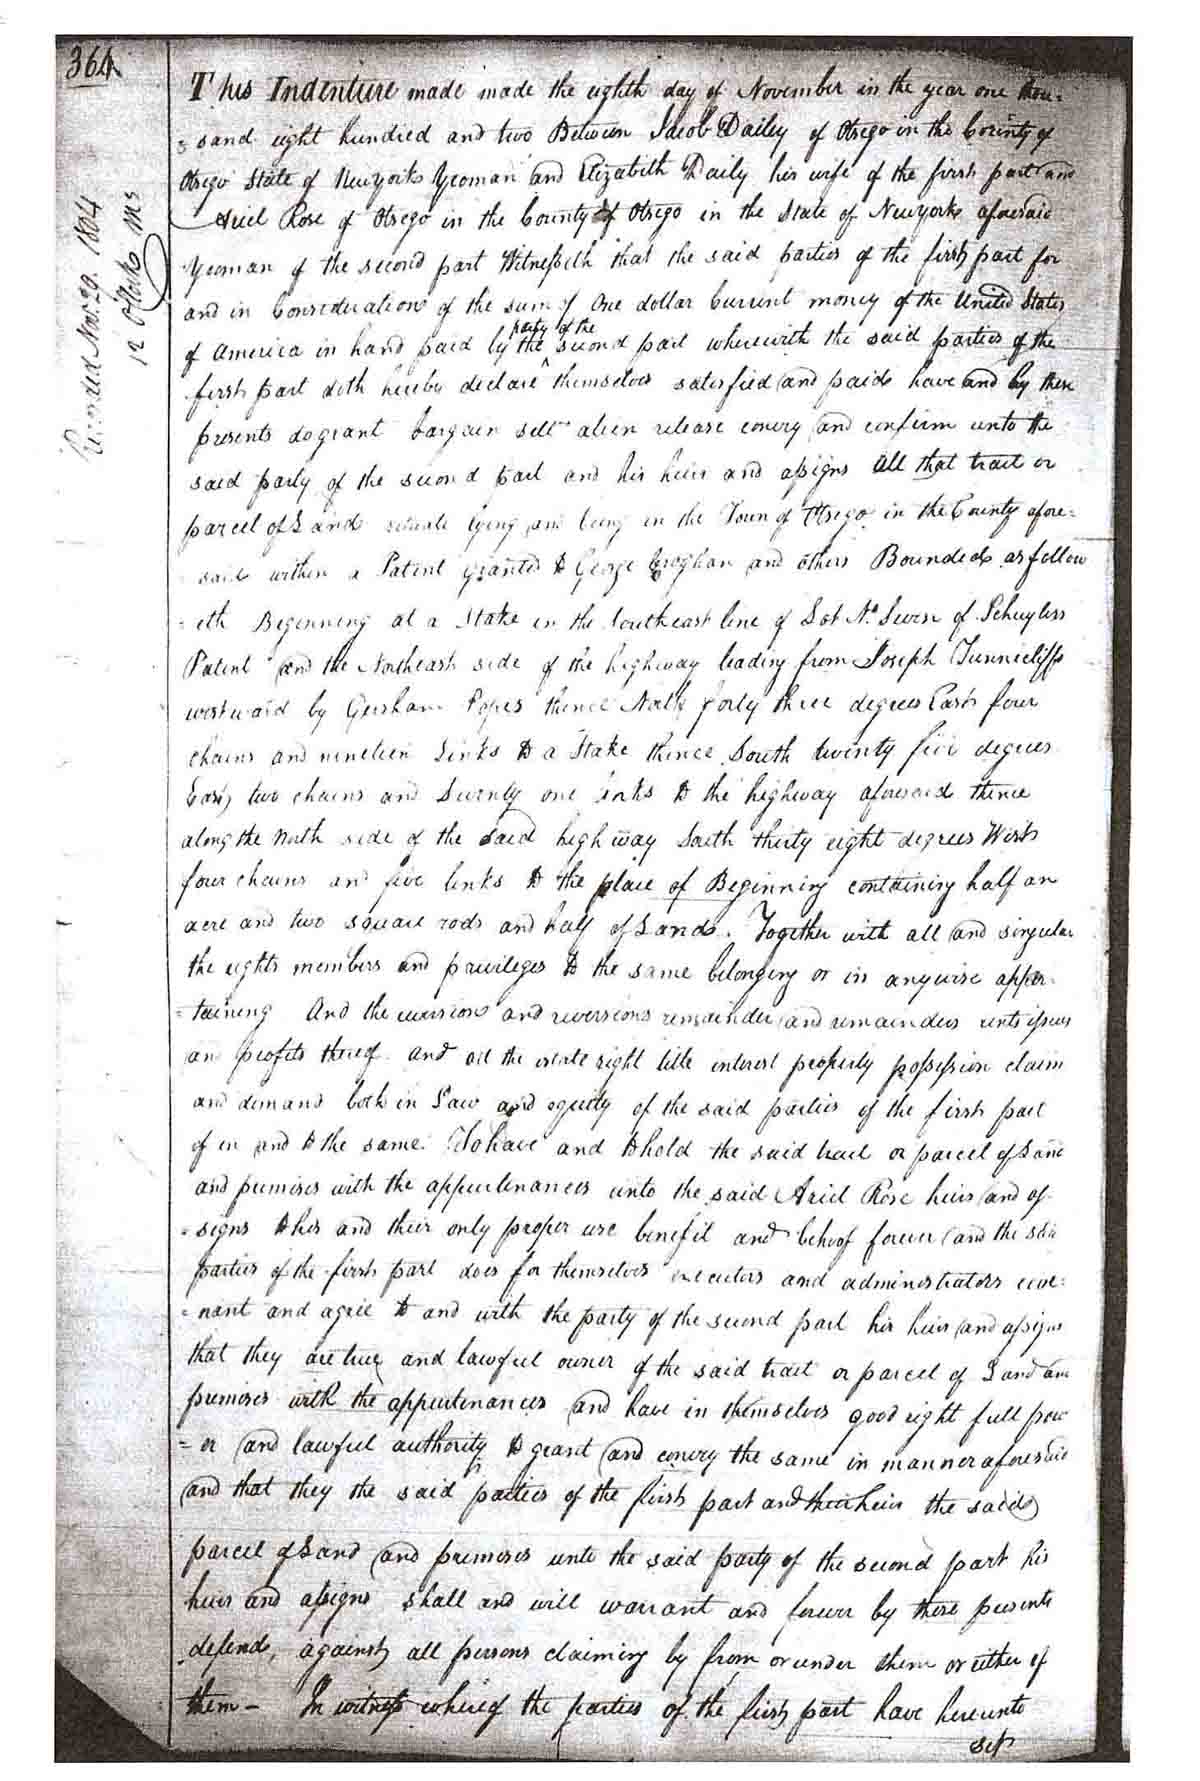 364
Recorded Nov. 29. 1804
12 oClock Ms
This Indenture made made the eighth day of November in the year one thou-
= sand eight hundred and two Between Jacob Dailey of Otsego in the County of
Otsego State of New york Yeoman and Elizabeth Daily his wife of the first part and
Ariel Rose of Otsego in the County of Otsego in the State of New york aforesaid
Yeoman of the second part Witnesseth that the said parties of the first part for
and in Consideration of the sum of One dollar Current money of the United States
party of the
of America in hand paid by the ^ second part wherewith the said parties of the
first part doth hereby declare themselves satisfied and paid have and by these
presents do grant bargain sell alien release convey and confirm unto the
said party of the second part and his heirs and assigns All that tract or
parcel of Land situate lying and being in the Town of Otsego in the County afore=
said within a Patent granted to George Croghan and others Bounded as follow
= eth Beginning at a Stake in the Southeast line of Lot No. Seven of Schuylers
Patent and the Northeast side of the highway leading from Joseph Tunnicliffs
westward by Gersham Popes thence North forty three degrees East four
chains and nineteen Links to a Stake thence South twenty five degrees
East two chains and Seventy one links to the highway aforesaid thence
along the North side of the said highway South thirty eight degrees West
four chains and five links to the place of Beginning containing half an
acre and two square rods and half of Land. Together with all and singular
the rights members and privileges to the same belonging or in anywise apper-
= taining And the reversion and reversions remainder and remainders rents issues
and profits thereof and all the estate right title interest property possession claim
and demand both in Law and equity of the said parties of the first part
of in and to the same. To have and to hold the said tract or parcel of Land
and premises with the appurtenances unto the said Ariel Rose heirs and as-
= signs to his and their only proper use benefit and behoof forever and the said
parties of the first part does for themselves executors and administrators cove-
= nant and agree to and with the party of the second part his heirs and assigns
that they are true and lawful owner of the said tract or parcel of Land and
premises with the appurtenances and have in themselves good right full pow
= er and lawful authority to grant and convey the same in manner aforesaid
and that they the said parties of the first part and their heirs the said
parcel of Land and premises unto the said party of the second part his
heirs and assigns shall and will warrant and forever by these presents
defend, against all persons claiming by from or under them or either of
them - In witness whereof the parties of the first part have hereunto
set